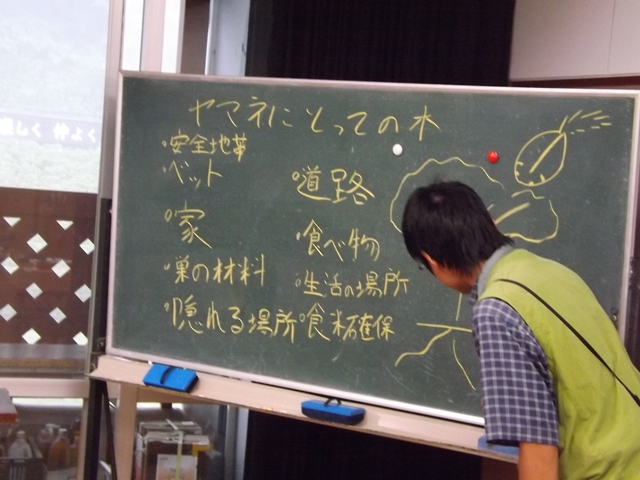 ヤマネにとっての木
・安全地帯
・ベット
・家
・巣の材料
・隠れる場所
・道路
・食べ物
・生活の場所
・食料確保
しく 仲よく